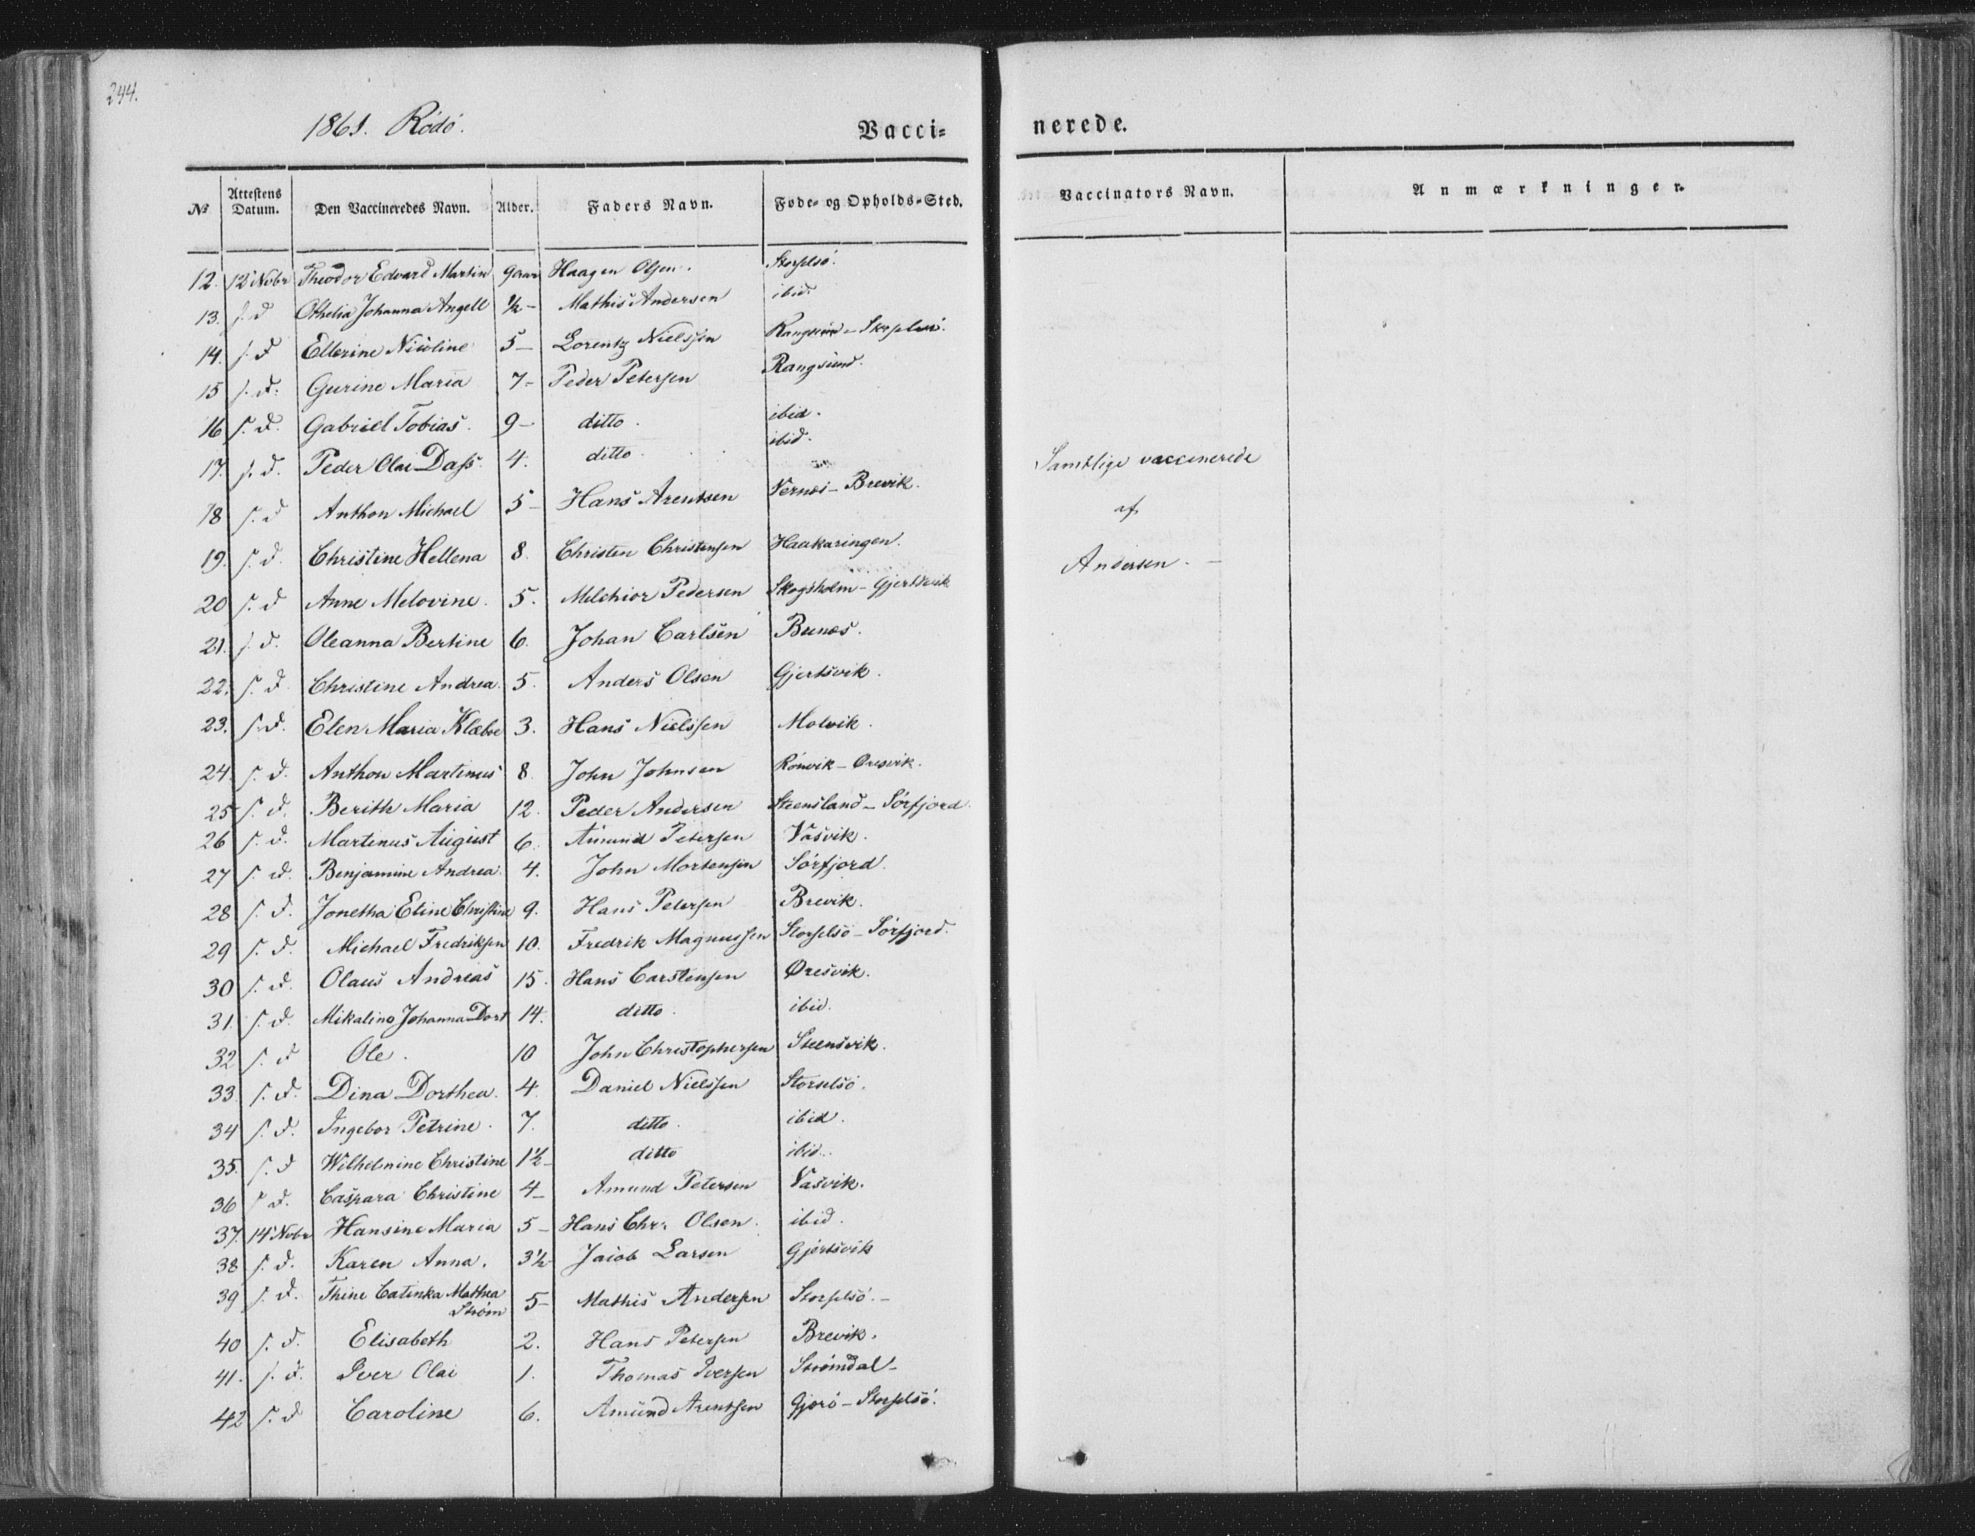 244.
1861. Rödö.
Vacci=
nerede.
No Attestens Datum. Den Vaccineredes Navn. Alder. Faders Navn. Føde= og Opholds=Sted. Vaccinators Navn. Anmærkninger.
12. 12 Nvbr Theodor Edvard Martin 9 aar Haagen Olsen. Storselsö.
13. s. d Othelia Johanna Angell ½ - Mathis Andersen ibid.
14. s. d Ellerine Nicoline 5 - Lorentz Nielssen Rangsund - Storselsö.
15 s. d. Gurine Maria 7 - Peder Petersen Rangsund.
16 s. d. Gabriel Tobias. 9 - ditto. ibid.
17. s. d. Peder Olai Dass. 4. ditto. ibid.
18 s. d Anthon Michael 5 - Hans Arentsen Vernæs - Brevik.
19. s. d. Christine Hellena 8. Christen Christensen Haakaringen.
20 s. d Anne Melovine. 5. Melchior Pedersen Skogsholm - Gjertsvik
21. s. d. Oleanna Bertine 6. Johan Carlsen Bunæs.
22. s. d. Christine Andrea. 5. Anders Olsen Gjertsvik.
23. s. d. Elen Maria Klæboe 3. Hans Nielssen Molvik.
24. s. d. Anthon Martinus 8. John Johnsen Rönvik - Øresvik.
25 s. d. Berith Maria 12. Peder Andersen Steensland - Sörfjord.
26 s. d. Martinus August 6. Amund Petersen Vasvik.
27 s. d. Benjamine Andrea. 4. John Mortensen Sörfjord.
28 s. d. Jonetha Eline Christine 9. Hans Petersen Brevik.
29 s. d. Michael Fredriksen 10. Fredrik Magnussen Storselsö - Sörfjord.
30 s. d. Olaus Andreas 15. Hans Carstensen Øresvik.
31. s. d. Mikaline Johanna Dort 14. ditto. ibid.
32 s. d Ole. 10 John Christophersen Steensvik.
33. s. d. Dina Dorthea. 4. Daniel Nielssen Storselsö.
34 s. d. Ingebor Petrine. 7. ditto. ibid.
35. s. d Wilhelmine Christine 1½ - ditto ibid.
36 s d. Caspara Christine 4 - Amund Petersen Vasvik.
37. 14 Nvbr Hansine Maria 5 - Hans Chr. Olsen. ibid.
38 s. d. Karen Anna. 3½ - Jacob Larsen Gjertsvik
39 s. d. Thine Catinka Mathea Ström 5 - Mathis Andersen Storselsö. -
40 s. d. Elisabeth 2. Hans Petersen Brevik.
41. s. d. Iver Olai 1. Thomas Iversen Strömdal -
42 s. d Caroline 6. Amund Arentsen Gjerö - Storselsö.
Samtlige vaccinerede
af
Andersen. -